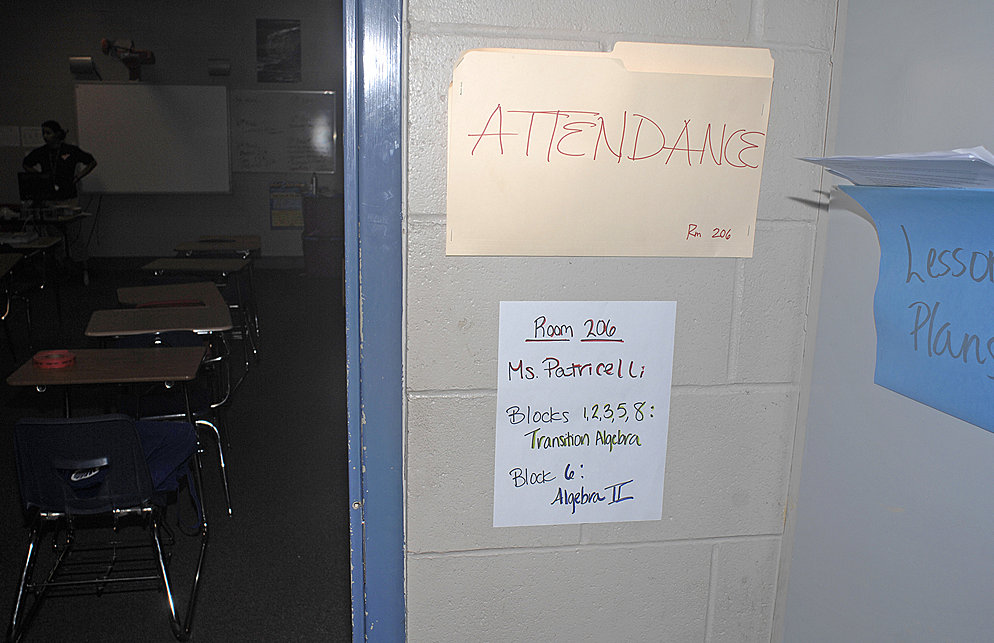 ATTENDANCE
Rm 206
Room 206
Ms. Patricelli
Blocks 1,2,3,5,8:
Transition Algebra
Block 6:
Algebra II
Lesson
Plans